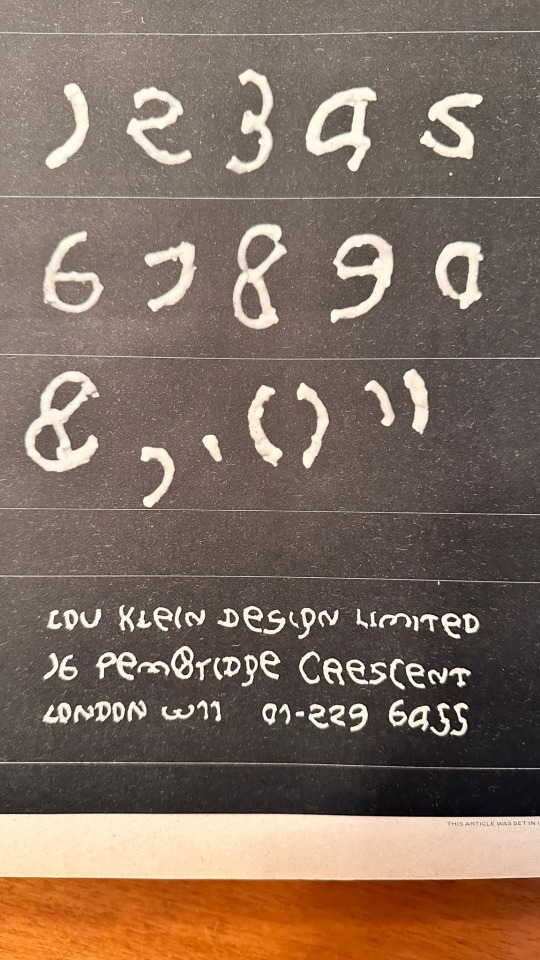 1 2 3 4 5
6 7 8 9 0
& , . ( ) ’ ’
LOU KLEIN DESIGN LIMITED
16 PEMBRIDGE CRESCENT
LONDON W11 01-229 6455
THIS ARTICLE WAS SET IN